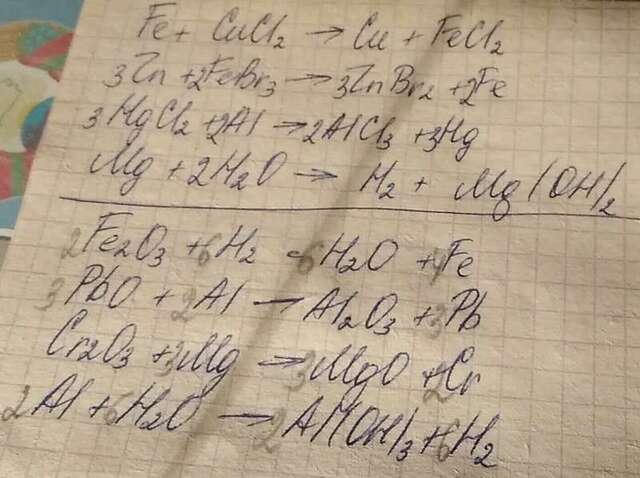 Fe + CuCl2 → Cu + FeCl2
3Zn + 2FeBr3 → 3ZnBr2 + 2Fe
3HgCl2 + 2Al → 2AlCl3 + 3Hg
Mg + 2H2O → H2 + Mg(OH)2
2Fe2O3 + 6H2 - 6H2O + 4Fe
3PbO + 2Al — Al2O3 + 3Pb
Cr2O3 + 3Mg → 3MgO + 2Cr
2Al + 6H2O → 2Al(OH)3 + 6H2